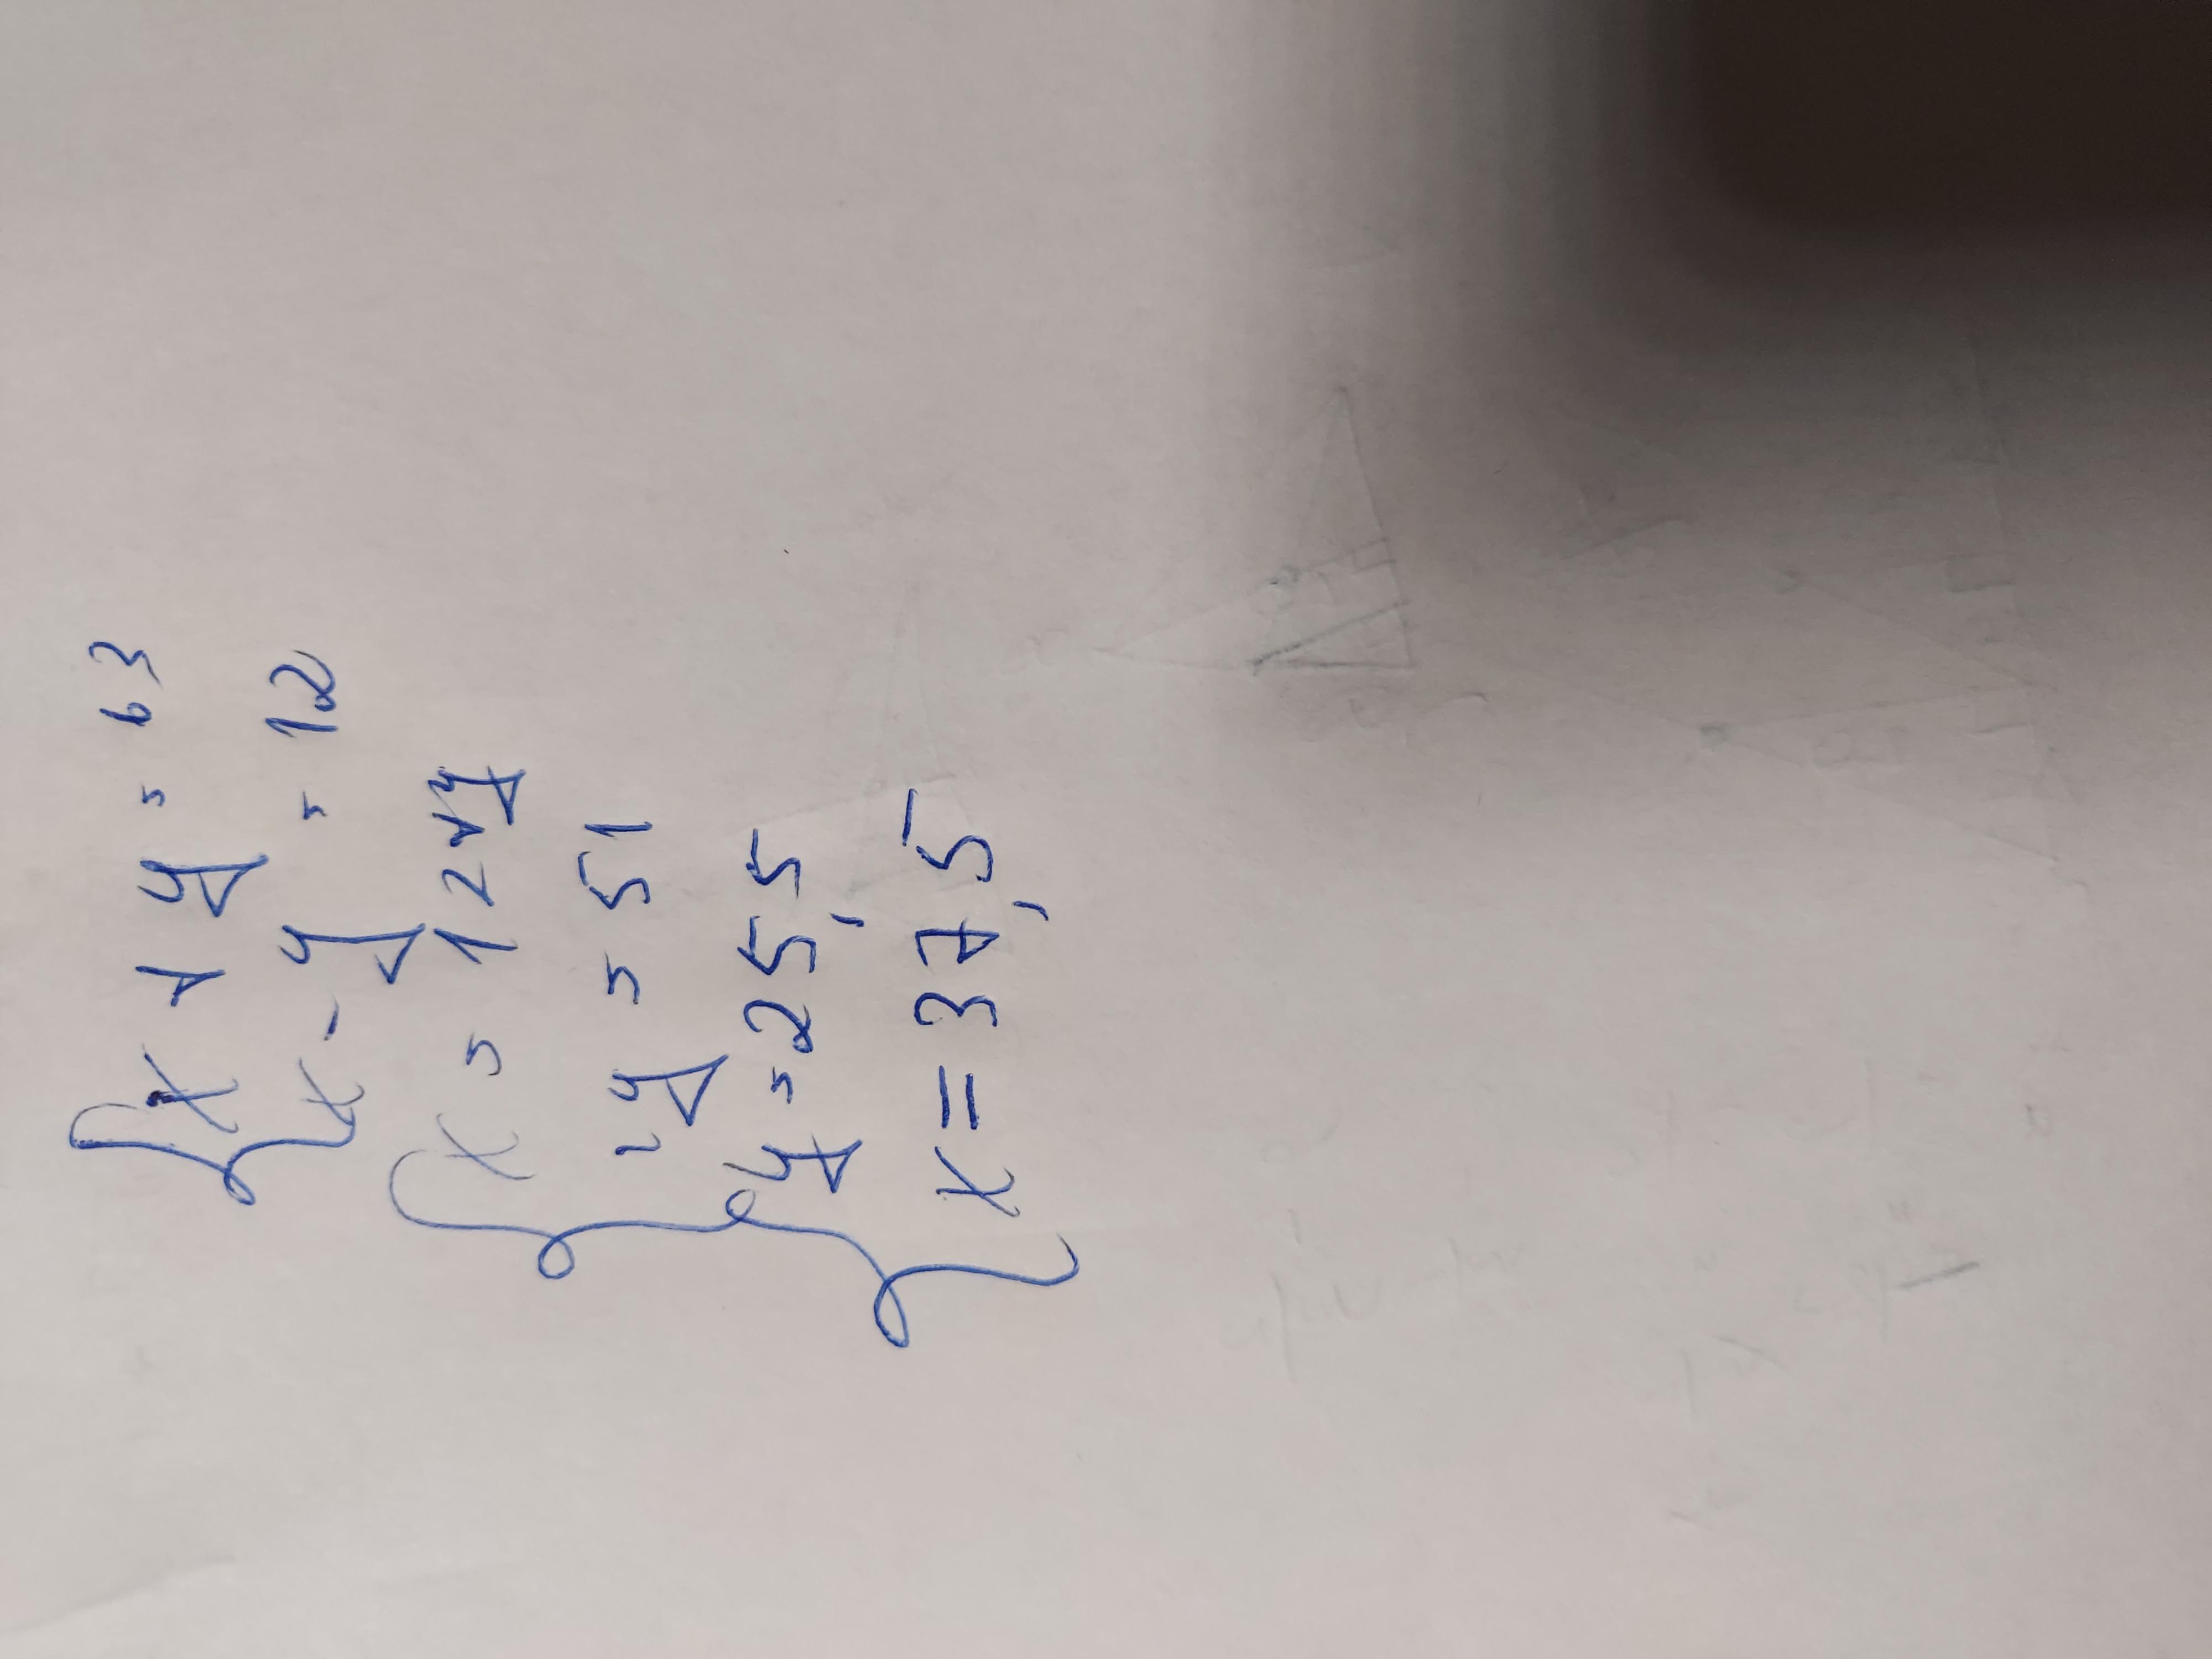 x + y = 63
x - y = 12
x = 12 + y
2y = 51
y = 25,5
x = 37,5